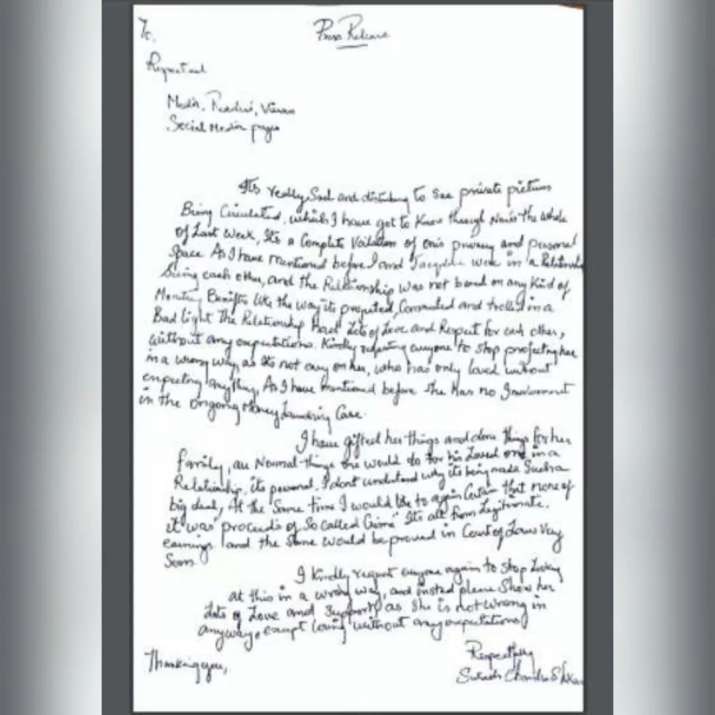 To,
Press Release
Respected
Media, Readers, Viewers
Social Media pages
Its really Sad and disturbing to see private pictures
Being Circulated, which I have got to Know through News the whole
of Last Week, Its a Complete Voilation of one's privacy and personal
Space As I have mentioned before I and Jacqueline were in a Relationship
Seeing each other, and the Relationship was not based on any Kind of
Monetary Benifits like the way its projected, Commented and trolled in a
Bad light The Relationship Lots of Love and Respect for each other,
without any expectations. Kindly requesting anyone to stop projecting her
in a wrong way, as its not easy on her, who has only loved without
expecting anything, As I have mentioned before She has no Involvement
in the ongoing Money Laundring Case.
I have gifted her things and done things for her
family, are Normal things one would do for his Loved one in a
Relationship, its personal, I dont understand why its being made Such a
big deal, At the Same time I would like to again Certain that none of
it was "proceeds of So called Crime" Its all from Legitimate.
earnings and the Same would be proved in Court of Laws Very
Soon.
I Kindly request anyone again to Stop Looking
at this in a wrong way, and insted please Show her
Lots of Love and Support as She is not Wrong in
anyway, except loving without any expectations
Respectfully
Thanking you,
Chandra